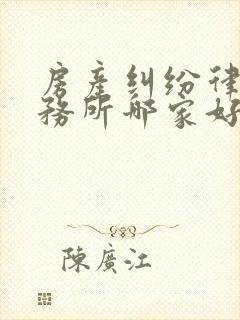 房产纠纷律
务所哪家好
陳廣江